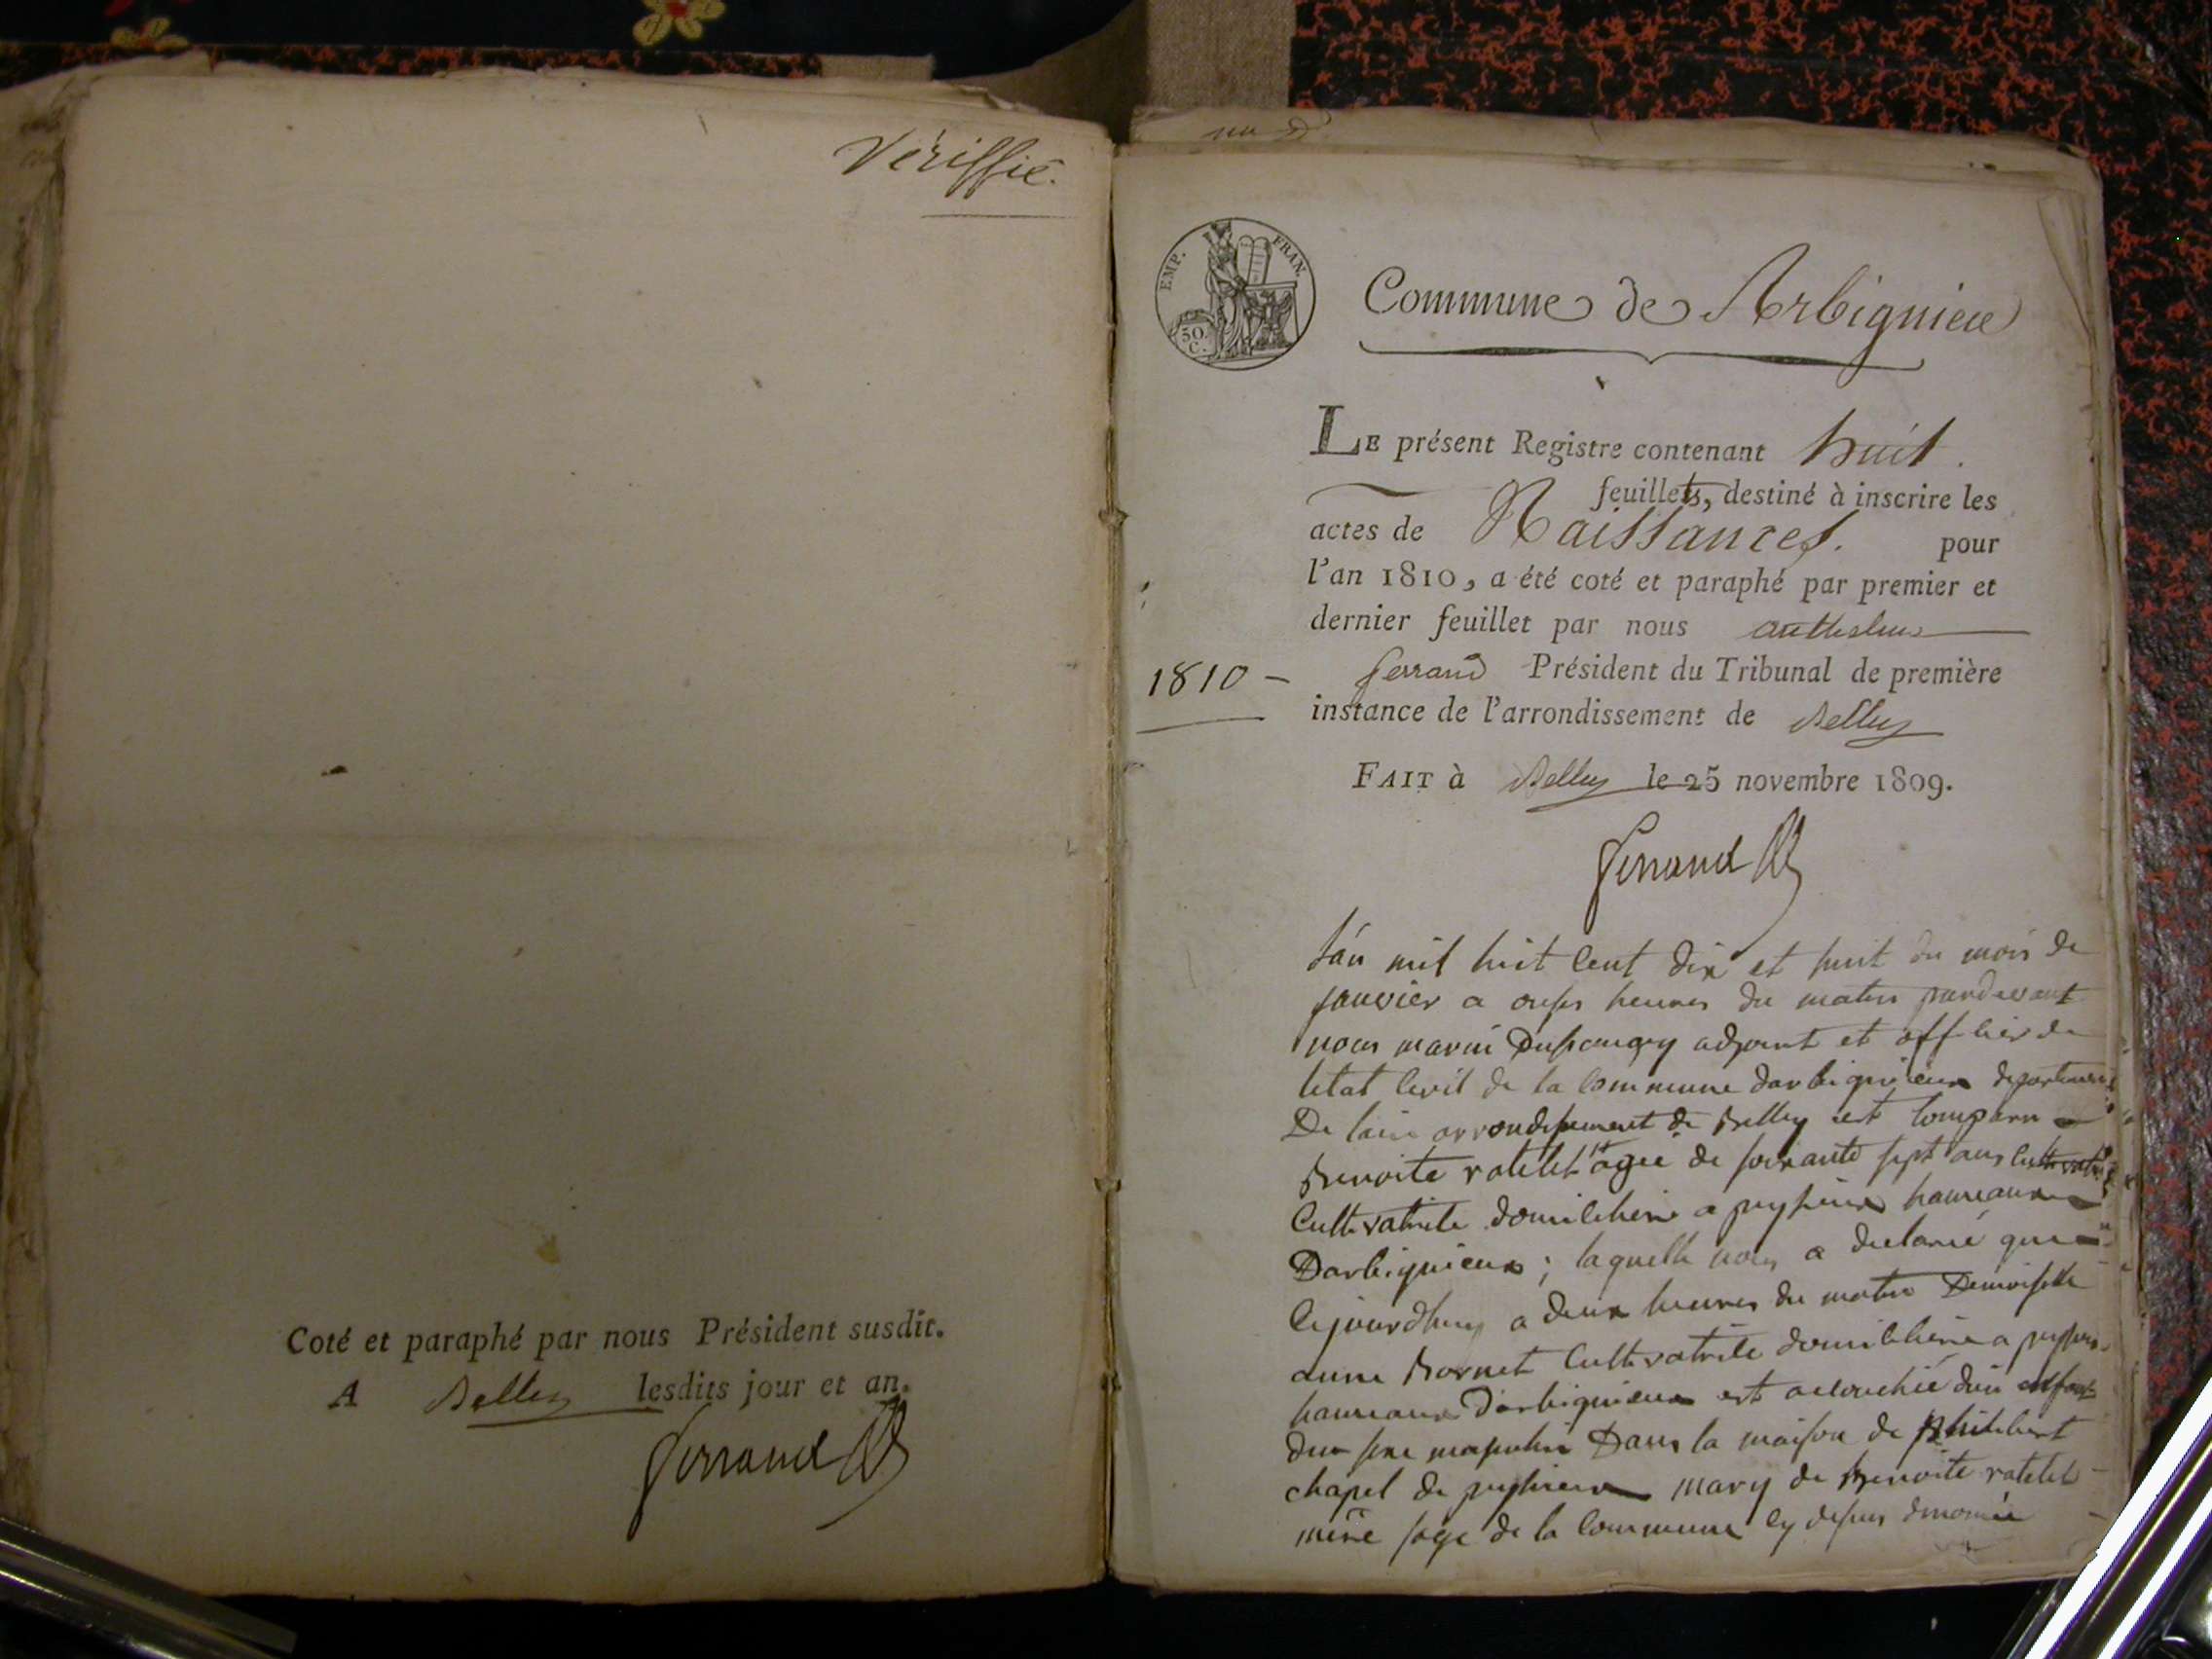 Vériffié.
Coté et paraphé par nous Président susdit.
A Belley lesdits jour et an.
Ferrand
EMP. FRAN.
50 C.
Commune de Arbignieu
LE présent Registre contenant huit
feuillets, destiné à inscrire les
actes de Naissances. pour
l'an 1810, a été coté et paraphé par premier et
dernier feuillet par nous anthelme
1810 - ferrand Président du Tribunal de première
instance de l'arrondissement de Belley
FAIT à Belley le 25 novembre 1809.
Ferrand
Lán mil huit Cent dix et huit du mois de
janvier a onses heures du matin pardevant
nous marin adjoint et officier de
letat Civil de la Commune darbignieux departement
De lain arrondissement de Belley est Comparu
Benoite ratelet agée de soixante sept ans
Cultivatrice domiciliere a hameaux
Darbignieux ; laquelle nous a declaré que
Cejourdhuy a deux heures du matin Demoiselle
anne Bornet Cultivatrice domiciliere a
hameaux Darbignieux est accouchée dun enfant
du sexe masculin Dans la maison de philibert
chapel de mary de Benoite ratelet
mere sage de la Commune Cy desus